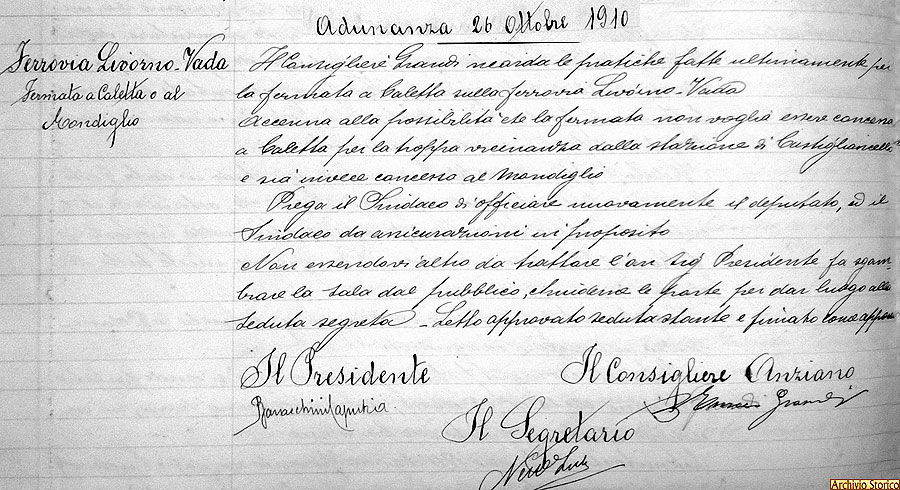 Adunanza 26 Ottobre 1910
Ferrovia Livorno-Vada
Fermata a Caletta o al
Mondiglio
Il Consigliere Grandi ricorda le pratiche fatte ultimamente per
la fermata a Caletta sulla ferrovia Livorno-Vada
Accenna alla possibilità che la fermata non voglia essere concessa
a Caletta per la troppa vicinanza dalla stazione di Castiglioncello
e sia invece concessa al Mondiglio
Prega il Sindaco di officiare nuovamente il deputato, ed il
Sindaco da assicurazioni in proposito
Non essendovi altro da trattare l'on Sig Presidente fa sgom
brare la sala dal pubblico, chiuderne le porte per dar luogo alla
seduta segreta - Letto approvato seduta stante e firmato come appresso
Il Presidente
Il Consigliere Anziano
Grandi
Il Segretario
Archivio Storico